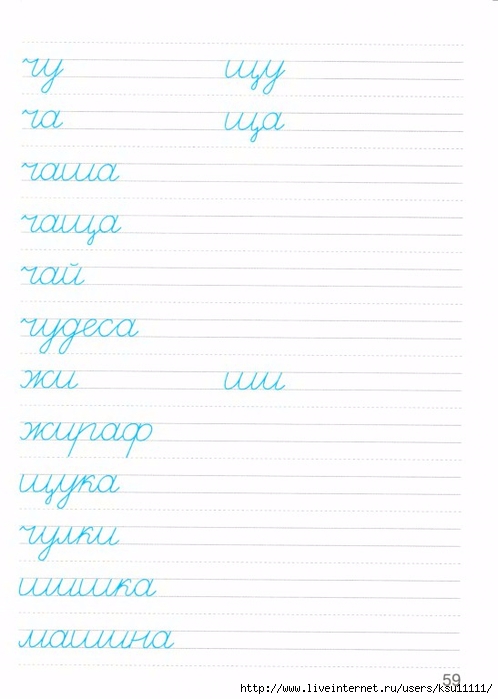 чу щу
ча ща
чаша
чаща
чай
чудеса
жи ши
жираф
щука
чулки
шишка
машина
59
http://www.liveinternet.ru/users/ksu11111/